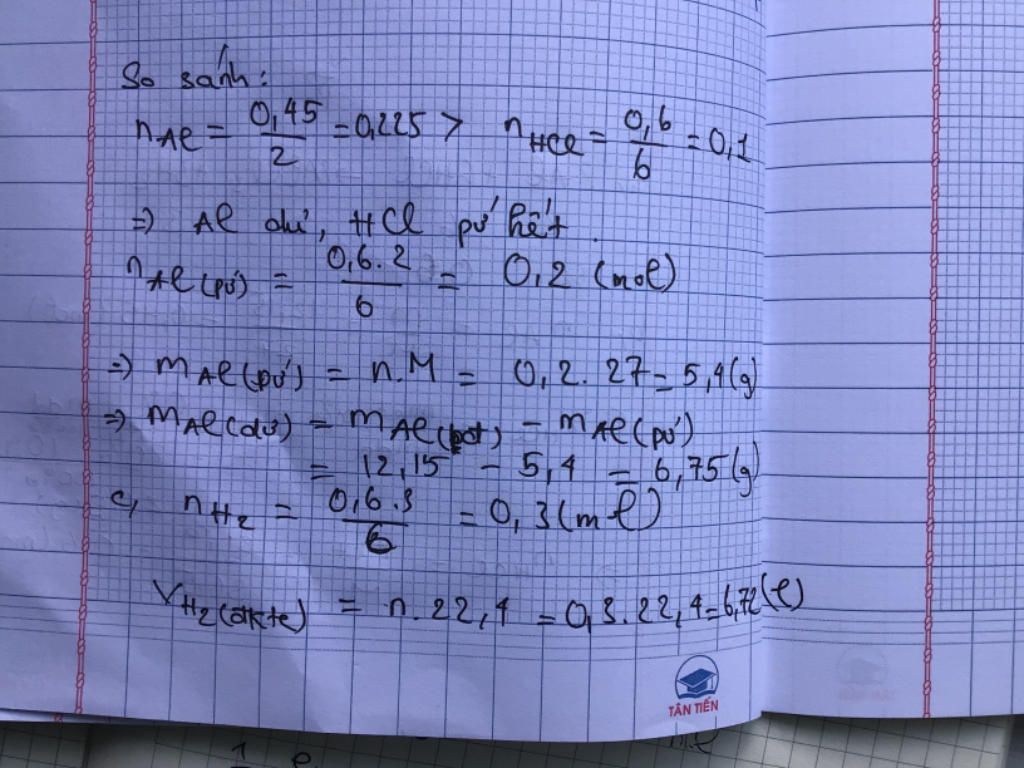 So sánh:
nAl = 0,45/2 = 0,225 > nHCl = 0,6/6 = 0,1
=> Al dư, HCl pứ hết.
nAl(pứ) = 0,6.2/6 = 0,2 (mol)
=> mAl(pứ) = n.M = 0,2.27 = 5,4(g)
=> mAl(dư) = mAl(bđ) - mAl(pứ)
= 12,15 - 5,4 = 6,75(g)
c, nH2 = 0,6.3/6 = 0,3(ml)
VH2(đkte) = n.22,4 = 0,3.22,4 = 6,72(l)
TÂN TIẾN